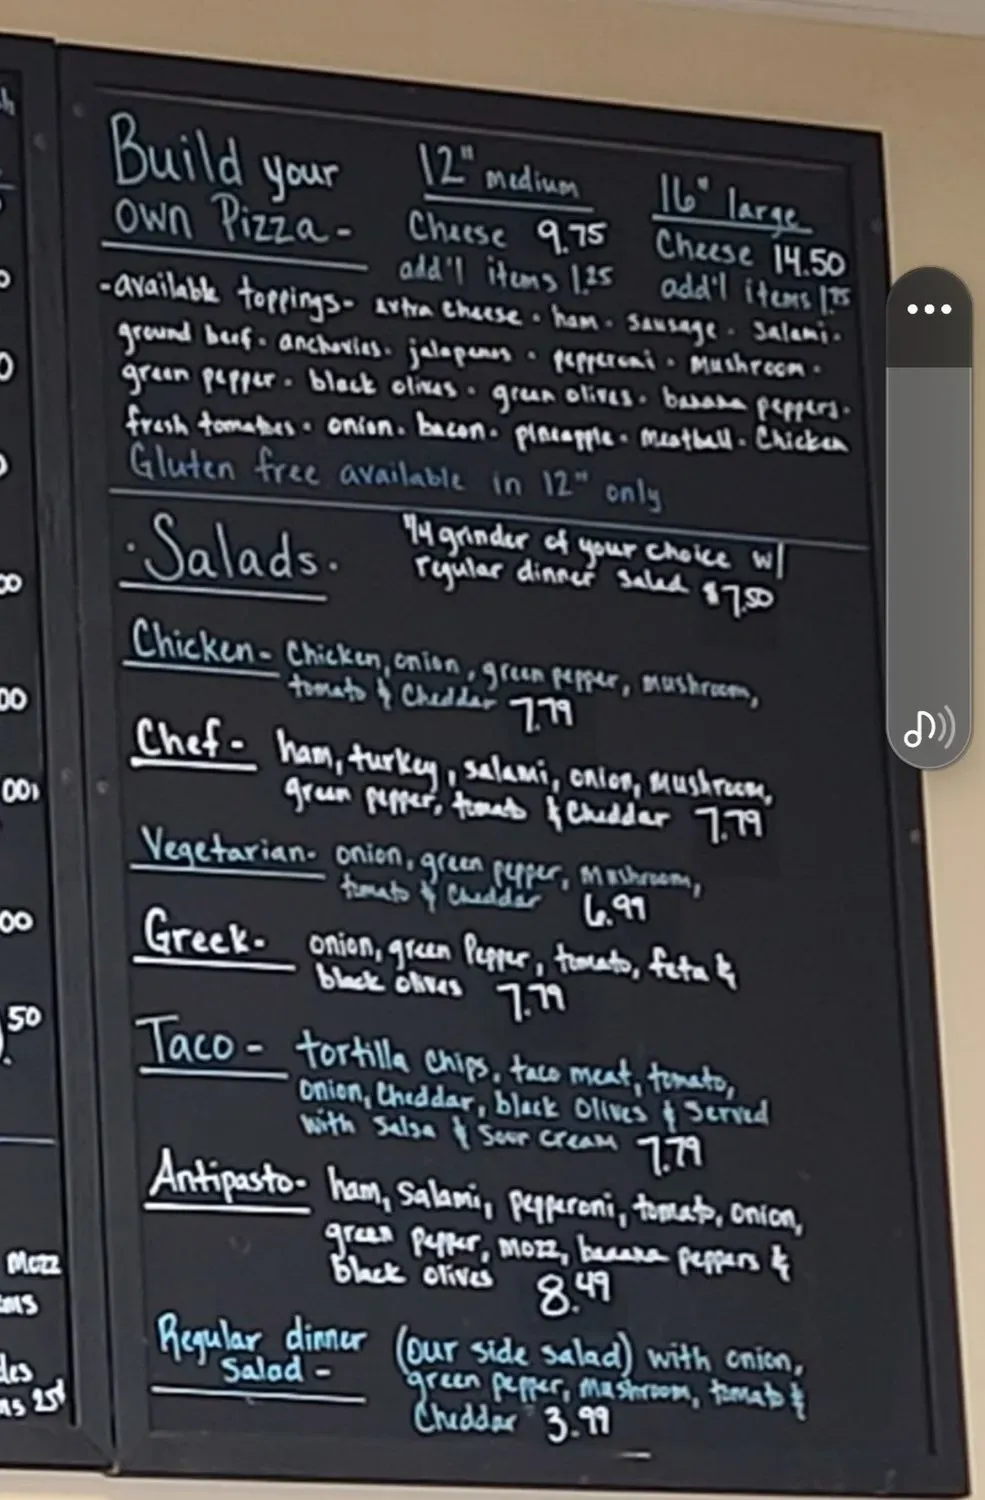 Build your
own Pizza-
12" medium
Cheese 9.75
add'l items 1.25
16" large
Cheese 14.50
add'l items 1.75
-available toppings- extra cheese · ham · sausage · salami ·
ground beef · anchovies · jalapenos · pepperoni · mushroom ·
green pepper · black olives · green olives · banana peppers ·
fresh tomatoes · onion · bacon · pineapple · meatball · Chicken
Gluten free available in 12" only
·Salads·
1/4 grinder of your choice w/
regular dinner salad $7.50
Chicken- Chicken, onion, green pepper, mushroom,
tomato & Cheddar 7.79
Chef- ham, turkey, salami, onion, mushroom,
green pepper, tomato & Cheddar 7.79
Vegetarian- onion, green pepper, mushroom,
tomato & Cheddar 6.99
Greek- onion, green Pepper, tomato, feta &
black olives 7.79
Taco- tortilla chips, taco meat, tomato,
onion, Cheddar, black Olives & Served
with Salsa & Sour cream 7.79
Antipasto- ham, Salami, pepperoni, tomato, onion,
green pepper, mozz, banana peppers &
black olives 8.49
Regular dinner
Salad-
(our side salad) with onion,
green pepper, mushroom, tomato &
Cheddar 3.99
00
00
00
50
mozz
25¢